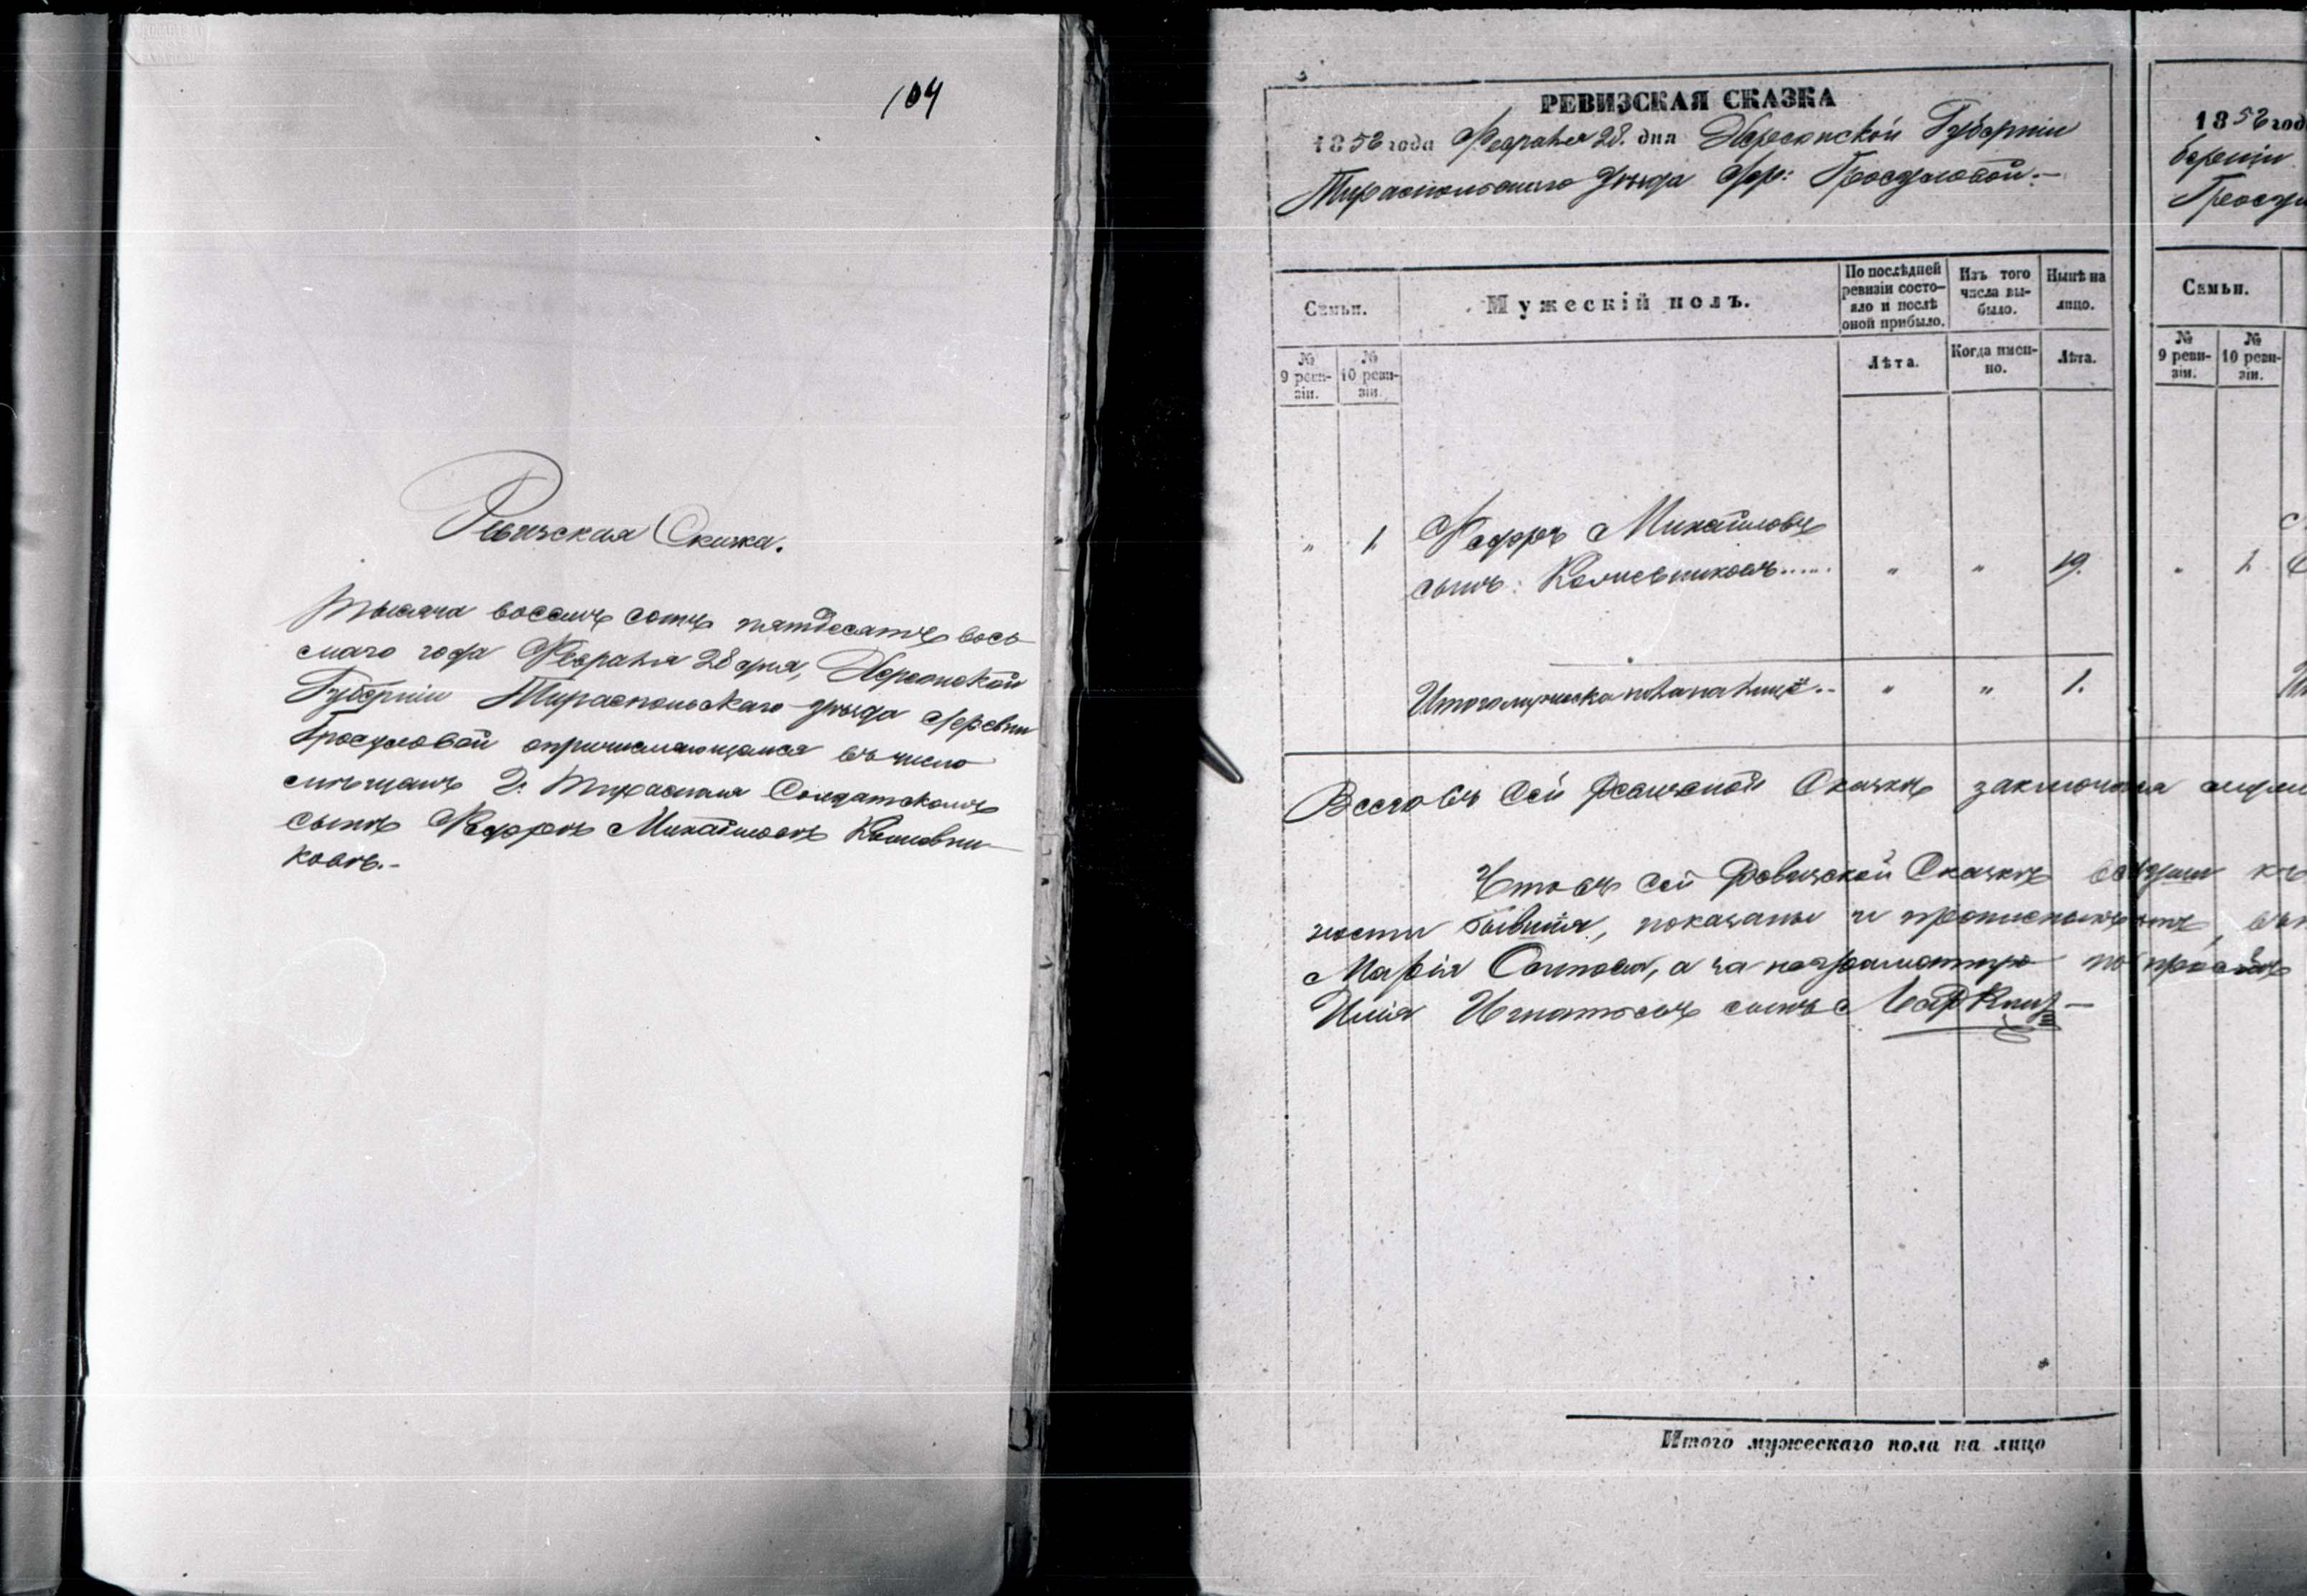 104
Ревизская Сказка.
Тысяча восемь сотъ пятдесятъ вось
маго года Февраля 28 дня, Херсонской
Губерніи Тираспольскаго уѣзда деревни
Гросуловой опричисляющемся въ число
мѣщанъ Г. Тирасполя Солдатскомъ
сынѣ Федорѣ Михайловѣ
ковѣ.-
РЕВИЗСКАЯ СКАЗКА
1858 года Февраля 28. дня Херсонской Губерніи
Тираспольскаго уѣзда дер: Гросуловой.-
Семьи.
Мужескій полъ.
По послѣдней ревизіи состояло и послѣ оной прибыло.
Изъ того числа выбыло.
Нынѣ на лицо.
№ 9 ревизіи.
№ 10 ревизіи.
Лѣта.
Когда имено.
Лѣта.
" 1. Федоръ Михайловъ
сынъ: ..... " " 19.
Итого мужеска пола на лицо.- " " 1.
Всего въ сей Ревизской Сказкѣ заключается
Что въ сей Ревизской Сказкѣ всѣ души къ
ности бывшія, показаны и прописныхъ нѣтъ, въ
Марія а за неграмотную по просьбѣ
Илія Игнатьевъ сынъ
Итого мужескаго пола на лицо
1858 год
берніи
Гросу
Семьи.
№ 9 ревизіи.
№ 10 ревизіи.
" 1.